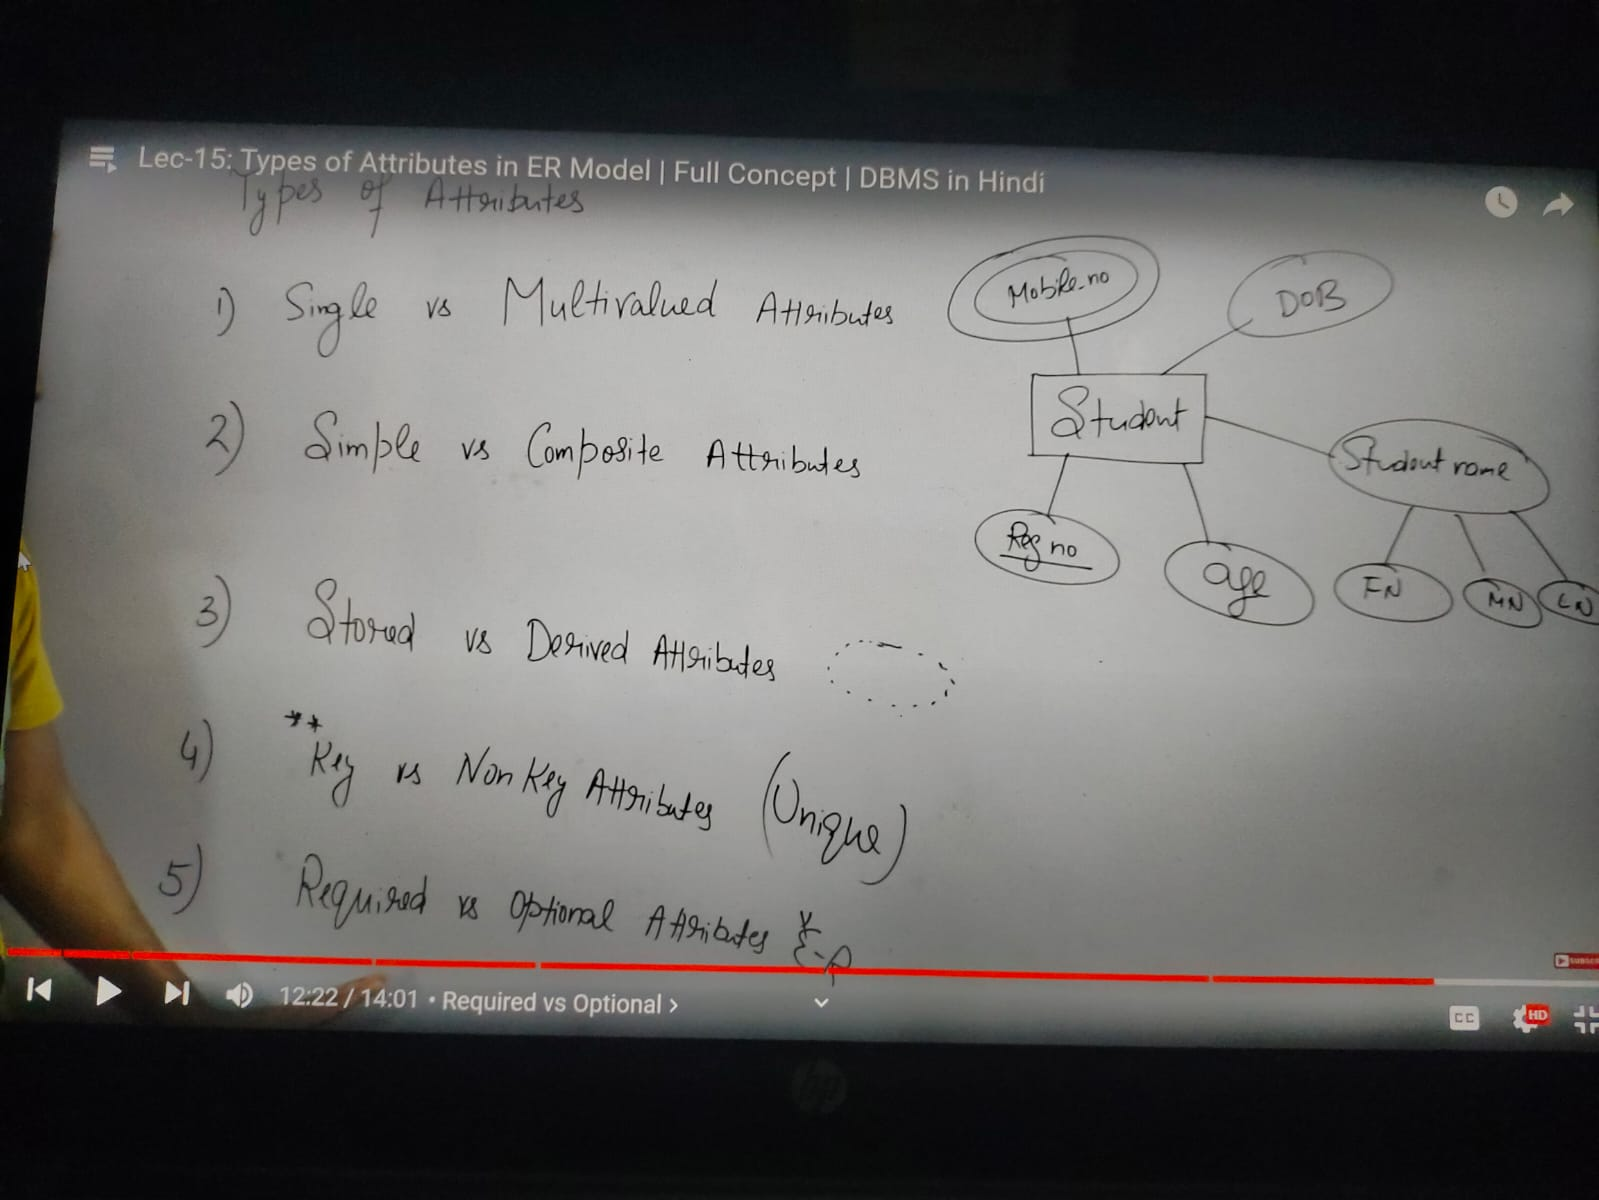 Lec-15: Types of Attributes in ER Model | Full Concept | DBMS in Hindi
Types of Attributes
1) Single vs Multivalued Attributes
2) Simple vs Composite Attributes
3) Stored vs Derived Attributes
4) ** Key vs Non Key Attributes (Unique)
5) Required vs Optional Attributes *
Mobile_no
DOB
Student
Student name
Reg no
age
FN
MN
LN
12:22 / 14:01 • Required vs Optional >
CC
HD
hp